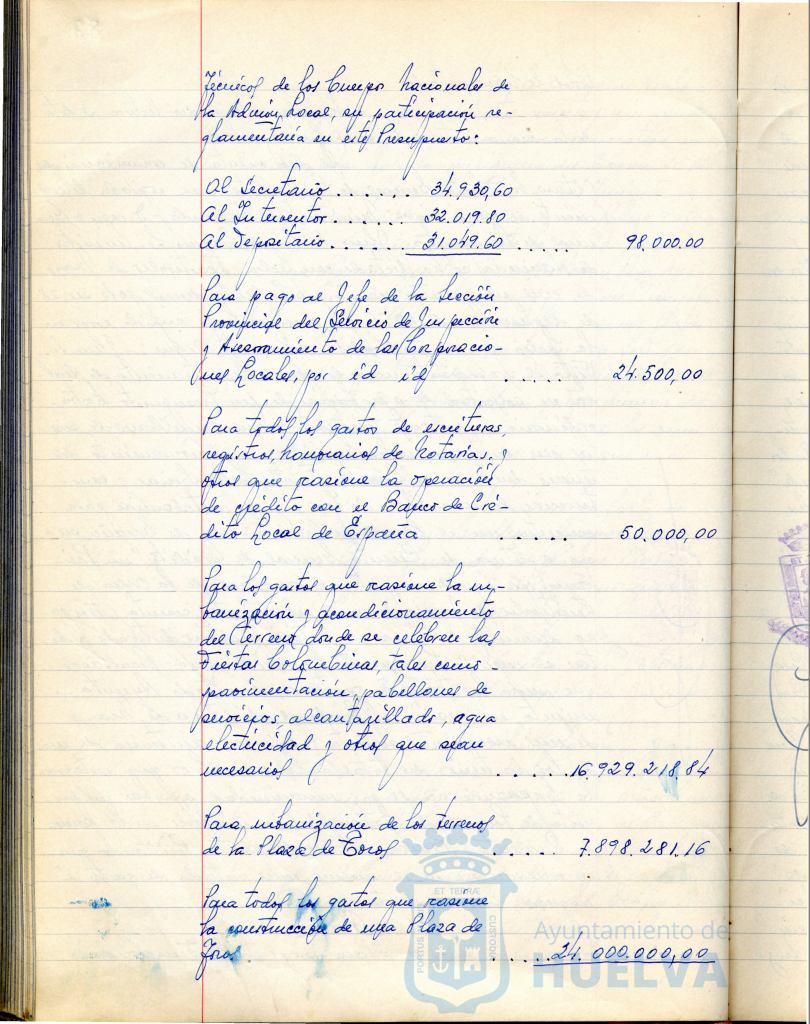 Técnicos de los Cuerpos Nacionales de
la Admión. Local, su participación re-
glamentaria en este Presupuesto:
Al Secretario ...... 34.930,60
Al Interventor ...... 32.019.80
Al Depositario ...... 31.049.60 ..... 98.000.00
Para pago al Jefe de la Sección
Provincial del Servicio de Inspección
y Asesoramiento de las Corporacio-
nes Locales, por id id ..... 24.500,00
Para todos los gastos de escrituras,
registros, honorarios de Notarias, y
otros que ocasione la operación
de crédito con el Banco de Cré-
dito Local de España ..... 50.000,00
Para los gastos que ocasione la ur-
banización y acondicionamiento
del terreno donde se celebren las
Fiestas Colombinas, tales como -
pavimentación, pabellones de
servicios, alcantarillado, agua
electricidad y otros que sean
necesarios ..... 16.929.218.84
Para urbanización de los terrenos
de la Plaza de Toros ..... 7.898.281.16
Para todos los gastos que ocasione
la construcción de una Plaza de
Toros ..... 24.000.000,00
ET TERRÆ
PORTUS
CUSTODIA
Ayuntamiento de
HUELVA